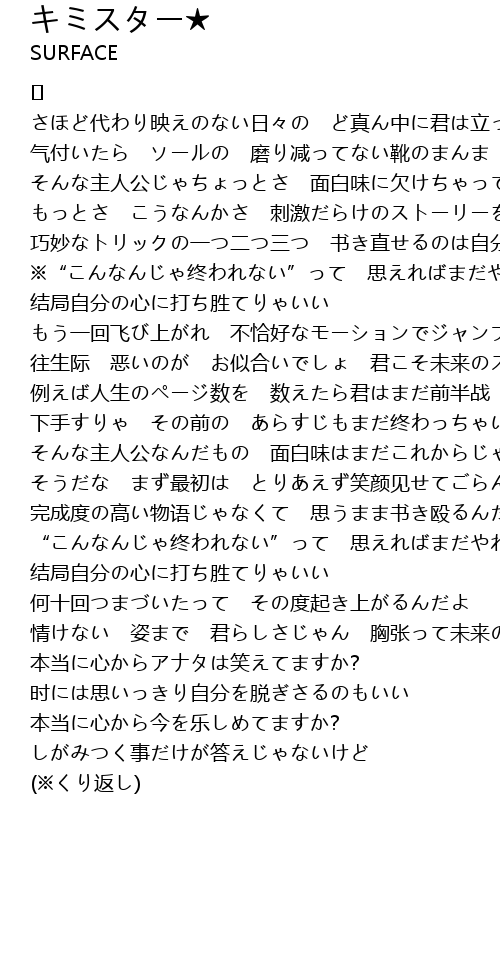 キミスター★
SURFACE
[]
さほど代わり映えのない日々の　ど真ん中に君は立っ
气付いたら　ソールの　磨り减ってない靴のまんま
そんな主人公じゃちょっとさ　面白味に欠けちゃって
もっとさ　こうなんかさ　刺激だらけのストーリーを
巧妙なトリックの一つ二つ三つ　书き直せるのは自分
※“こんなんじゃ终われない”って　思えればまだや
结局自分の心に打ち胜てりゃいい
もう一回飞び上がれ　不恰好なモーションでジャンプ
往生际　恶いのが　お似合いでしょ　君こそ未来のス
例えば人生のページ数を　数えたら君はまだ前半战
下手すりゃ　その前の　あらすじもまだ终わっちゃい
そんな主人公なんだもの　面白味はまだこれからじゃ
そうだな　まず最初は　とりあえず笑颜见せてごらん
完成度の高い物语じゃなくて　思うまま书き殴るんだ
“こんなんじゃ终われない”って　思えればまだやれ
结局自分の心に打ち胜てりゃいい
何十回つまづいたって　その度起き上がるんだよ
情けない　姿まで　君らしさじゃん　胸张って未来の
本当に心からアナタは笑えてますか?
时には思いっきり自分を脱ぎさるのもいい
本当に心から今を乐しめてますか?
しがみつく事だけが答えじゃないけど
(※くり返し)